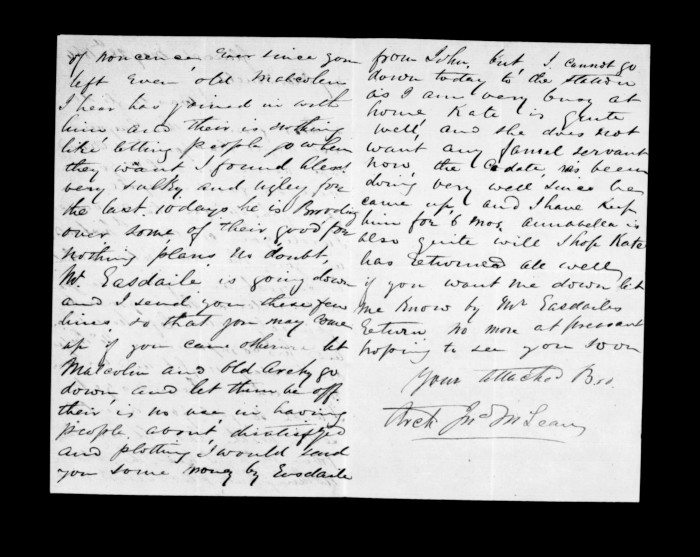 of noncence ever since you
left even old Malcolm
I hear has joined in with
him and their is nothing
like letting people go when
they want I found
very sulky and ugley for
the last 10 days he is Brooding
over some of their good for
nothing plans no doubt,
Mr. Easdaile is going down
and I send you these few
lines so that you may come
up if you can otherwise let
Malcolm and Old Archy go
down and let them be off
their is no use in having
people about disatisfyed
and plotting I would send
you some money by Easdaile
from John, but I cannot go
down today to the station
as I am very busy at
home Kate is quite
well and she does not
want any servant
now the Cadate has been
doing very well since he
came up and I have keep
him for 6 mos, Annabella is
also quite will I hop Kate
has returned all well
if you want me down let
me know by Mr Easdailes
return no more at pressant
hoping to see you soon
Your attached Bro.
Arch Jno McLean